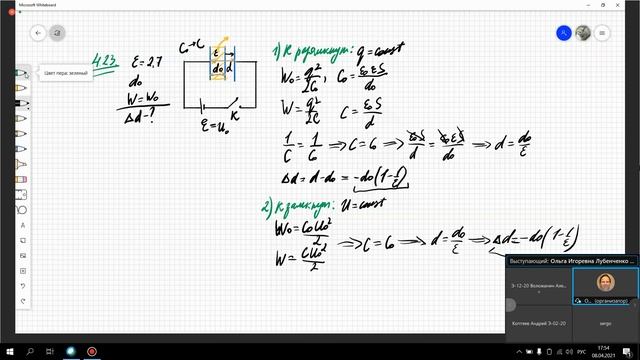 Microsoft Whiteboard
Цвет пера: зеленый
423
ε = 2,7
d₀
W = W₀
Δd - ?
C₀ → C
ε
d₀ d
K
Ɛ = U₀
1) К разомкнут: q = const
W₀ = q²/2C₀, C₀ = ε₀εS/d₀
W = q²/2C C = ε₀S/d
1/C = 1/C₀ ⟹ C = C₀ ⟹ ε₀S/d = ε₀εS/d₀ ⟹ d = d₀/ε
Δd = d - d₀ = -d₀(1 - 1/ε)
2) К замкнут: U = const
W₀ = C₀U₀²/2
W = CU₀²/2 ⟹ C = C₀ ⟹ d = d₀/ε ⟹ Δd = -d₀(1 - 1/ε)
Выступающий: Ольга Игоревна Лубенченко ...
Э-12-20 Воложанин Але...
О... (организатор)
Коптеев Андрей Э-02-20
sergo
РУС
17:54
08.04.2021